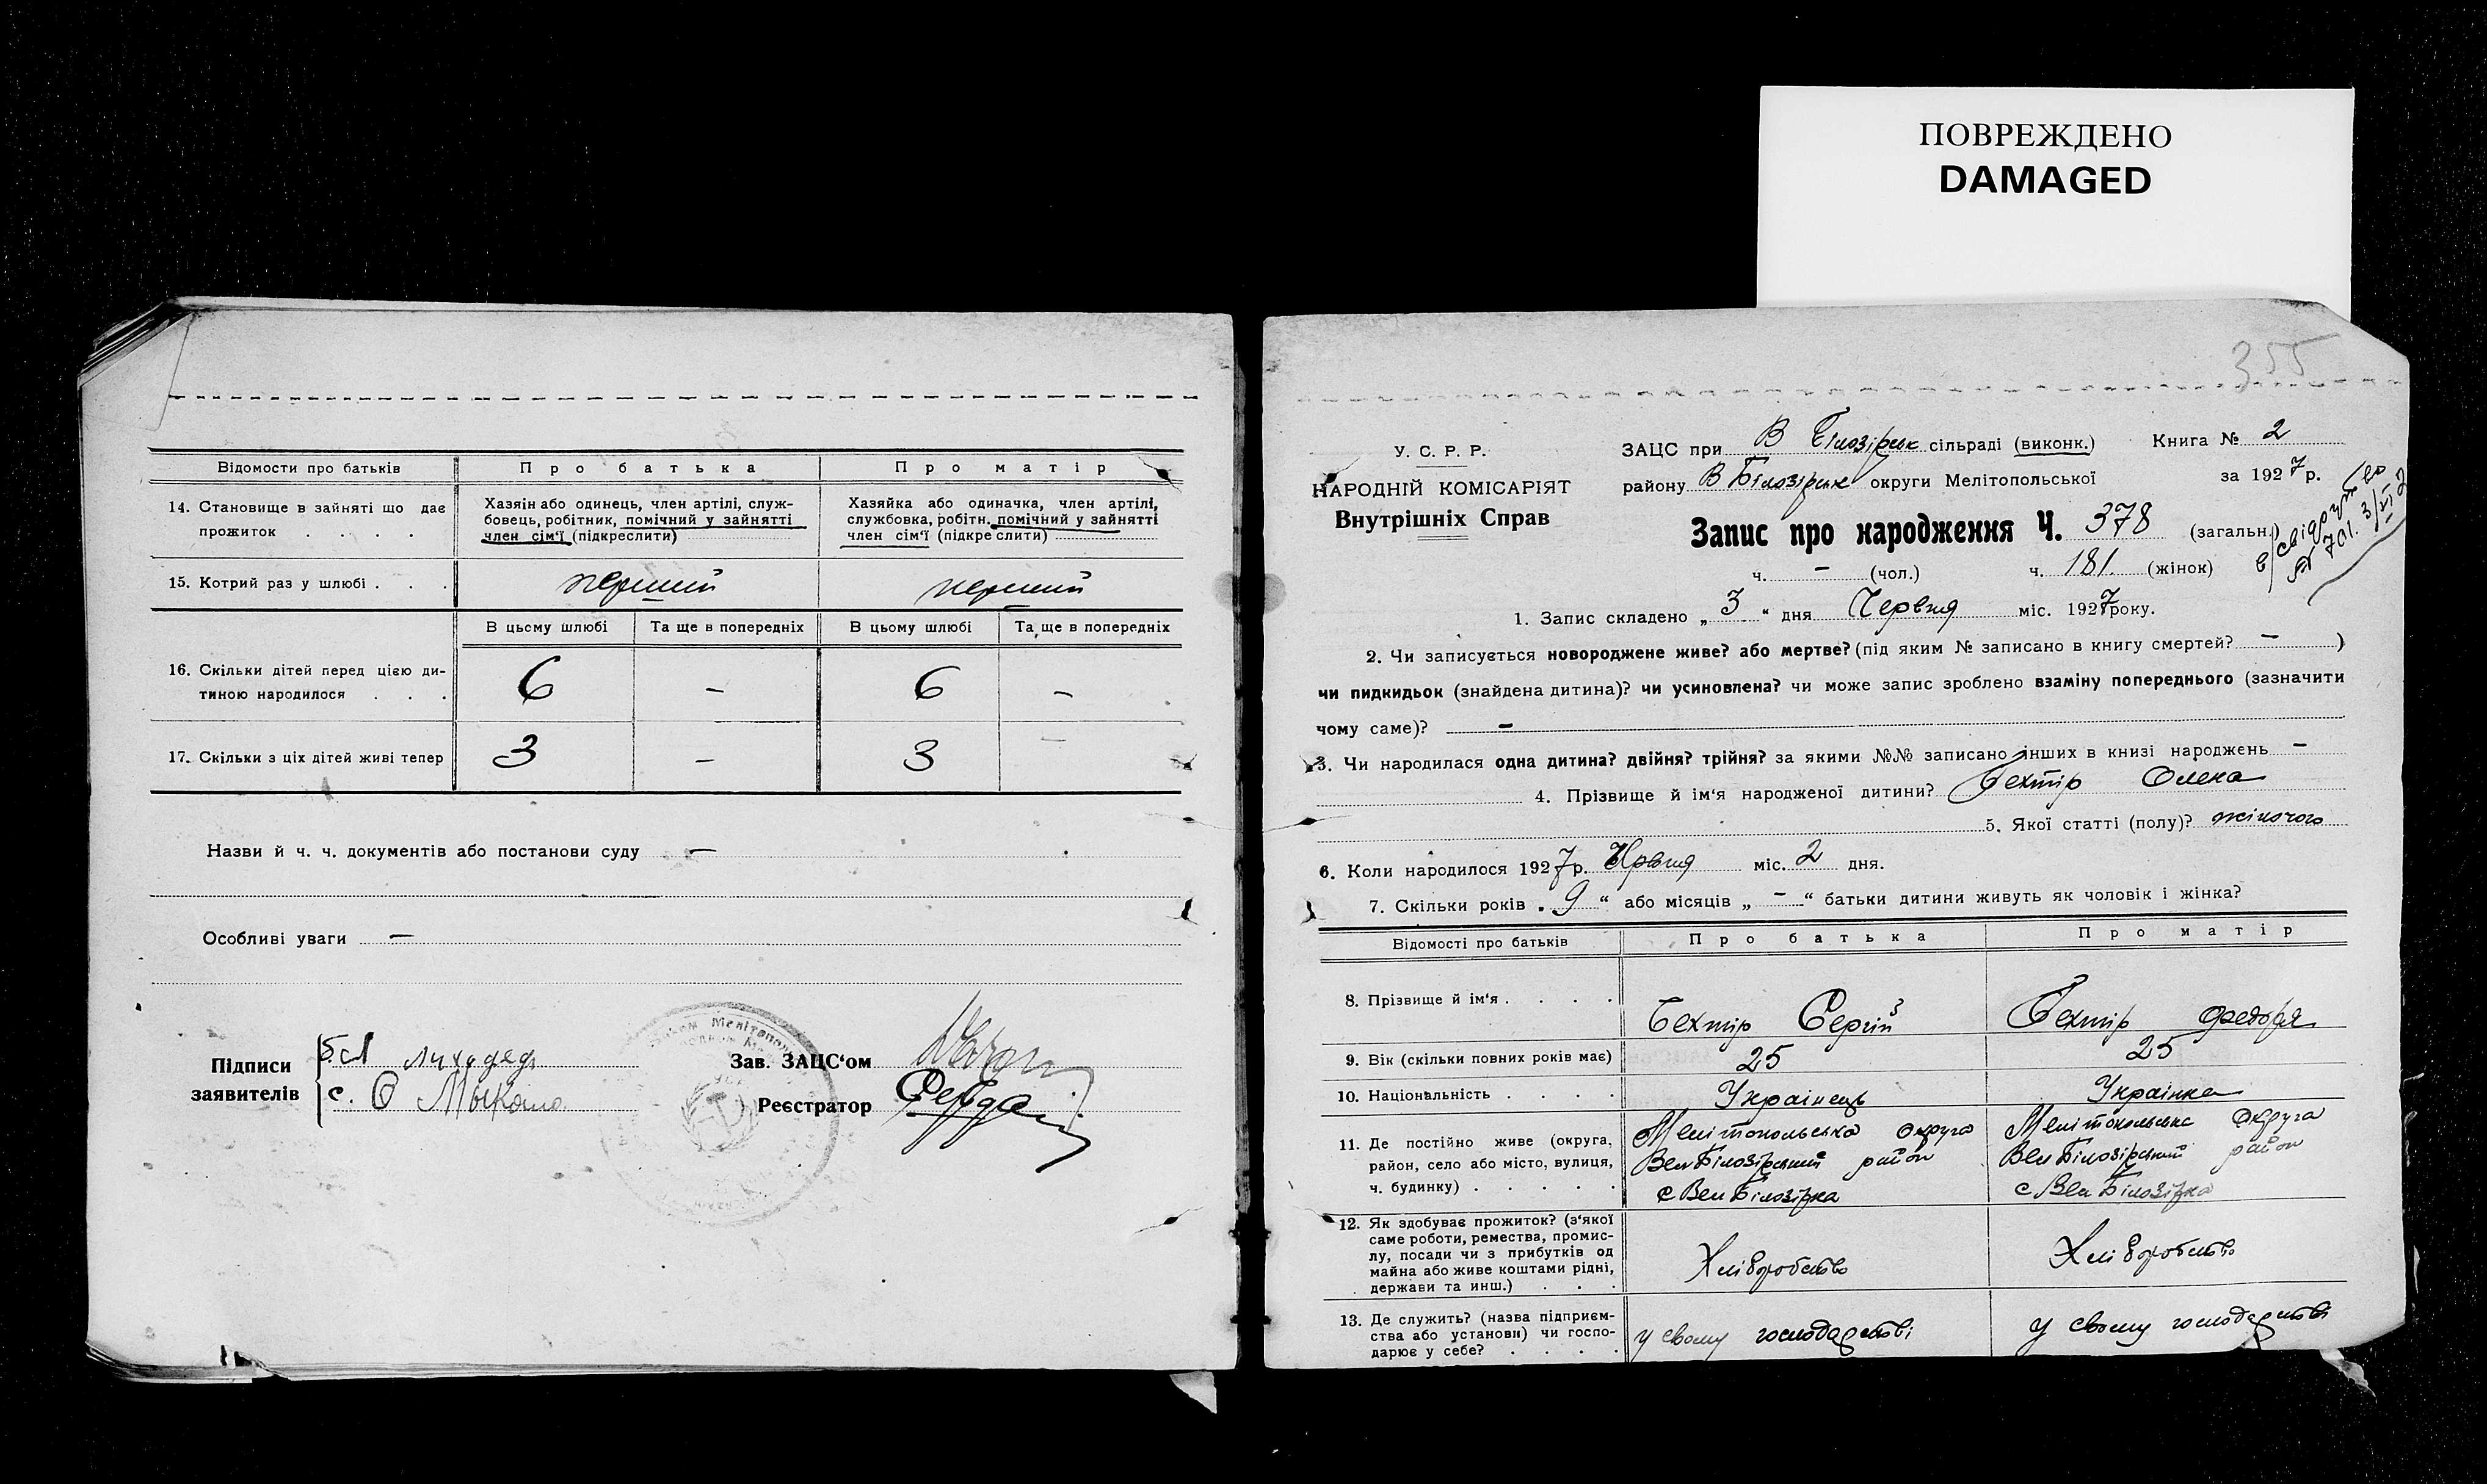 ПОВРЕЖДЕНО
DAMAGED
Відомости про батьків
Про батька
Про матір
14. Становище в зайняті що дає прожиток . . . .
Хазяін або одинець, член артілі, служ-
бовець, робітник, помічний у зайнятті
член сім'ї (підкреслити)
Хазяйка або одиначка, член артілі,
службовка, робітн. помічний у зайнятті
член сім'ї (підкреслити)
15. Котрий раз у шлюбі . . .
перший
перший
В цьому шлюбі
Та ще в попередніх
В цьому шлюбі
Та ще в попередніх
16. Скільки дітей перед цією ди-
тиною народилося . . .
6 - 6 -
17. Скільки з ціх дітей живі тепер
3 - 3 -
Назви й ч. ч. документів або постанови суду -
Особливі уваги -
Підписи
заявителів
Зав. ЗАЦС'ом
Реєстратор
355
У. С. Р. Р.
НАРОДНІЙ КОМІСАРІЯТ
Внутрішніх Справ
ЗАЦС при В Білозірськ сільраді (виконк.) Книга № 2
району В Білозірськ округи Мелітопольської за 1927 р.
Запис про народження Ч. 378 (загальн.)
ч. - (чол.) ч. 181. (жінок)
№ 701. 3/VI 2
1. Запис складено „3“ дня Червня міс. 1927 року.
2. Чи записується новороджене живе? або мертве? (під яким № записано в книгу смертей? - )
чи пидкидьок (знайдена дитина)? чи усиновлена? чи може запис зроблено взаміну попереднього (зазначити
чому саме)? -
3. Чи народилася одна дитина? двійня? трійня? за якими №№ записано інших в книзі народжень -
4. Прізвище й ім'я народженої дитини? Бехтір Олена
5. Якої статті (полу)? жіночого
6. Коли народилося 1927 р. Червня міс. 2 дня.
7. Скільки років „9“ або місяців „-“ батьки дитини живуть як чоловік і жінка?
Відомості про батьків
Про батька
Про матір
8. Прізвище й ім'я . . . .
Бехтір Сергій
Бехтір Федора
9. Вік (скільки повних років має)
25
25
10. Національність . . . .
Українець
Українка
11. Де постійно живе (округа,
район, село або місто, вулиця,
ч. будинку) . . . . .
Мелітопольська округа
Вел Білозірський район
с Вел Білозірка
Мелітопольська округа
Вел Білозірський район
с Вел Білозірка
12. Як здобуває прожиток? (з'якої
саме роботи, ремества, промис-
лу, посади чи з прибутків од
майна або живе коштами рідні,
держави та инш.) . . .
Хліборобство
Хліборобство
13. Де служить? (назва підприєм-
ства або установи) чи госпо-
дарює у себе? . . . .
у свому господарстві
у свому господарстві